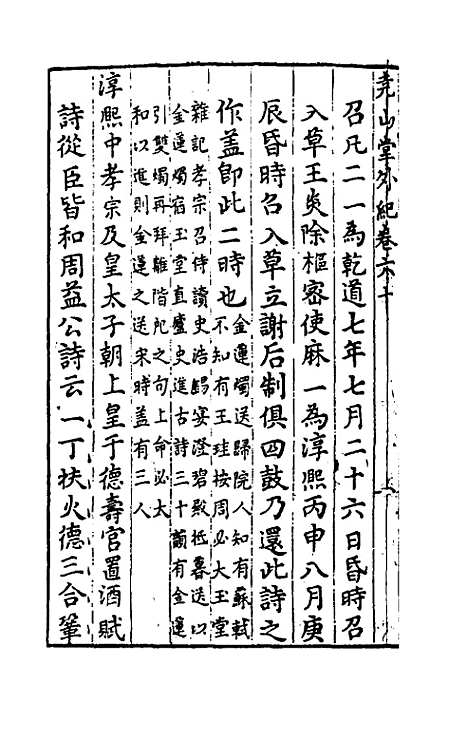 堯山堂外紀卷六十
召凡二一為乾道七年七月二十六日昏時召
入草王炎除樞密使麻一為淳熙丙申八月庚
辰昏時召入草立謝后制俱四鼓乃還此詩之
作蓋即此二時也
金蓮燭送歸院人知有蘇軾
不知有王珪按周必大玉堂
雜記孝宗召侍讀史浩賜宴澄碧殿抵暮送以
金蓮燭宿玉堂直廬史進古詩三十韻有金蓮
引雙燭再拜離階戺之句上命必大
和以進則金蓮之送宋時蓋有三人
淳熙中孝宗及皇太子朝上皇于德壽宮置酒賦
詩從臣皆和周益公詩云一丁扶火德三合鞏